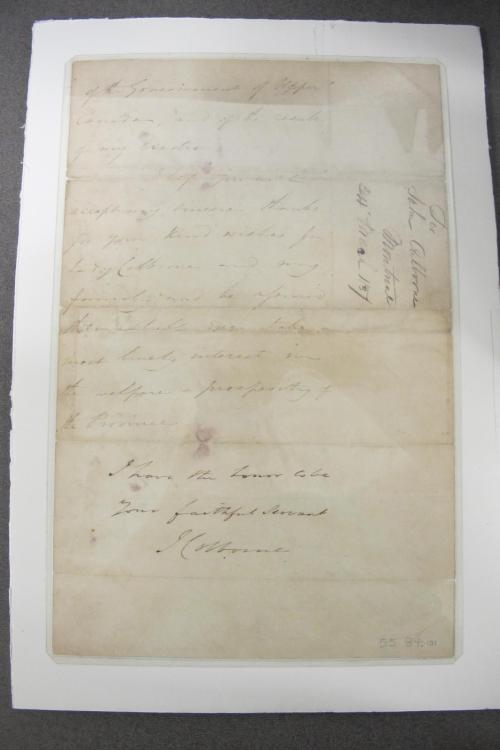 of the Government of Upper
Canada, and of the result
of my
accepting my sincere thanks
for your kind wishes for
Lady Colborne and my
family, and be assured
I shall ever take
most lively interest in
the welfare & prosperity of
the Province
I have the honor to be
Your faithful Servant
J Colborne
Sir
John Colborne
Montreal
55.84.